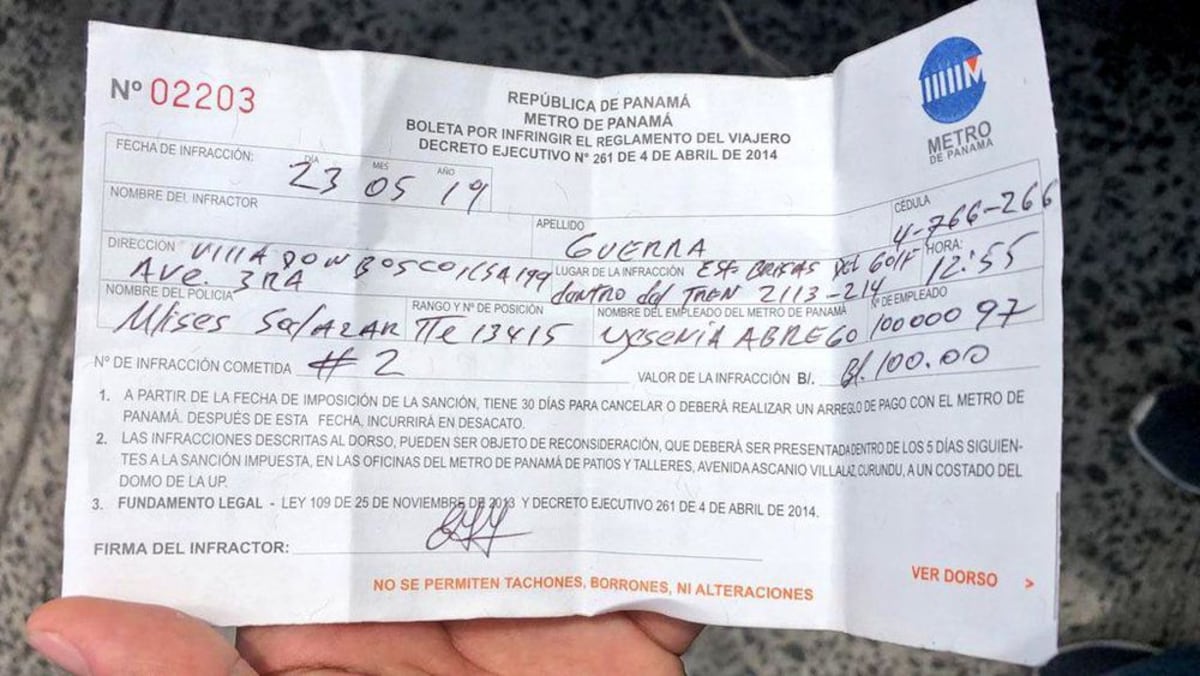 Nº 02203
REPÚBLICA DE PANAMÁ
METRO DE PANAMÁ
BOLETA POR INFRINGIR EL REGLAMENTO DEL VIAJERO
DECRETO EJECUTIVO Nº 261 DE 4 DE ABRIL DE 2014
METRO
DE PANAMÁ
FECHA DE INFRACCIÓN: DÍA MES AÑO
23 05 19
NOMBRE DEL INFRACTOR
APELLIDO
GUERRA
CÉDULA
4-766-266
DIRECCIÓN VILLA DON BOSCO CSA 199
AVE. 3RA
LUGAR DE LA INFRACCIÓN EST. BRISAS DEL GOLF
dentro del TREN 2113-214
HORA:
12:55
NOMBRE DEL POLICIA
Mises SALAZAR
RANGO Y Nº DE POSICIÓN
TTe 13415
NOMBRE DEL EMPLEADO DEL METRO DE PANAMÁ
YESENIA ABREGO
Nº DE EMPLEADO
10000097
Nº DE INFRACCIÓN COMETIDA # 2
VALOR DE LA INFRACCIÓN B/. B/. 100.00
1. A PARTIR DE LA FECHA DE IMPOSICIÓN DE LA SANCIÓN, TIENE 30 DÍAS PARA CANCELAR O DEBERÁ REALIZAR UN ARREGLO DE PAGO CON EL METRO DE
PANAMÁ. DESPUÉS DE ESTA FECHA, INCURRIRÁ EN DESACATO.
2. LAS INFRACCIONES DESCRITAS AL DORSO, PUEDEN SER OBJETO DE RECONSIDERACIÓN, QUE DEBERÁ SER PRESENTADA DENTRO DE LOS 5 DÍAS SIGUIEN-
TES A LA SANCIÓN IMPUESTA, EN LAS OFICINAS DEL METRO DE PANAMÁ DE PATIOS Y TALLERES, AVENIDA ASCANIO VILLALAZ, CURUNDU, A UN COSTADO DEL
DOMO DE LA UP.
3. FUNDAMENTO LEGAL - LEY 109 DE 25 DE NOVIEMBRE DE 2013 Y DECRETO EJECUTIVO 261 DE 4 DE ABRIL DE 2014.
FIRMA DEL INFRACTOR:
NO SE PERMITEN TACHONES, BORRONES, NI ALTERACIONES
VER DORSO >